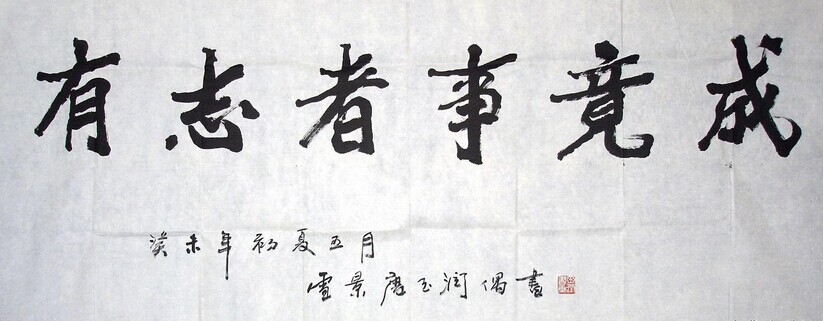 有志者事竟成
癸未年初夏五月
雪景唐玉润偶書